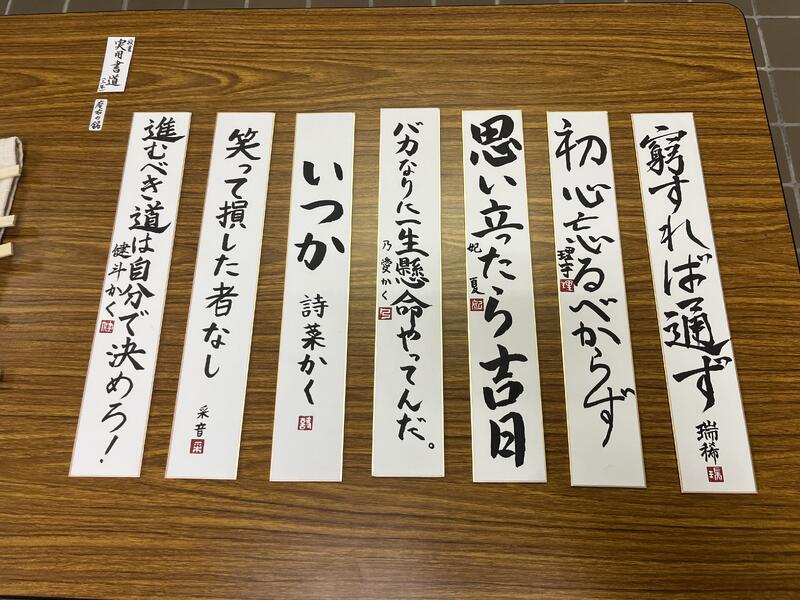 窮すれば通ず
瑞稀
初心忘るべからず
思い立ったら吉日
妃夏
バカなりに一生懸命やってんだ。
乃愛かく
いつか
詩菜かく
詩
笑って損した者なし
采音
采
進むべき道は自分で決めろ！
健斗かく
健
実用書道
座右の銘